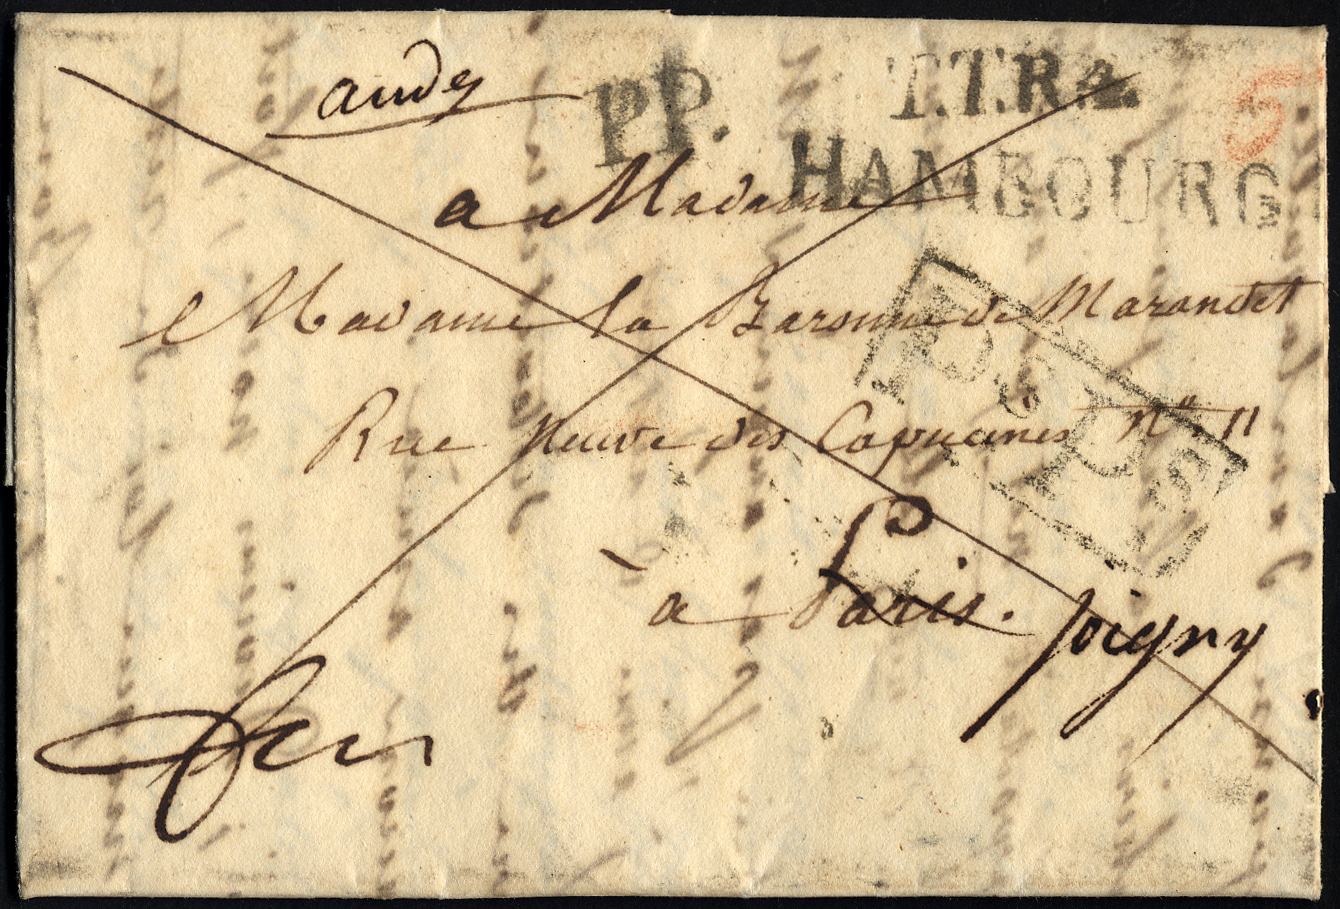 PP. T.T.R.4.
HAMBOURG
a Madame
Madame la Baronne de Marandet
Rue Neuve des Capucines No. 11
à Paris.
P.P.